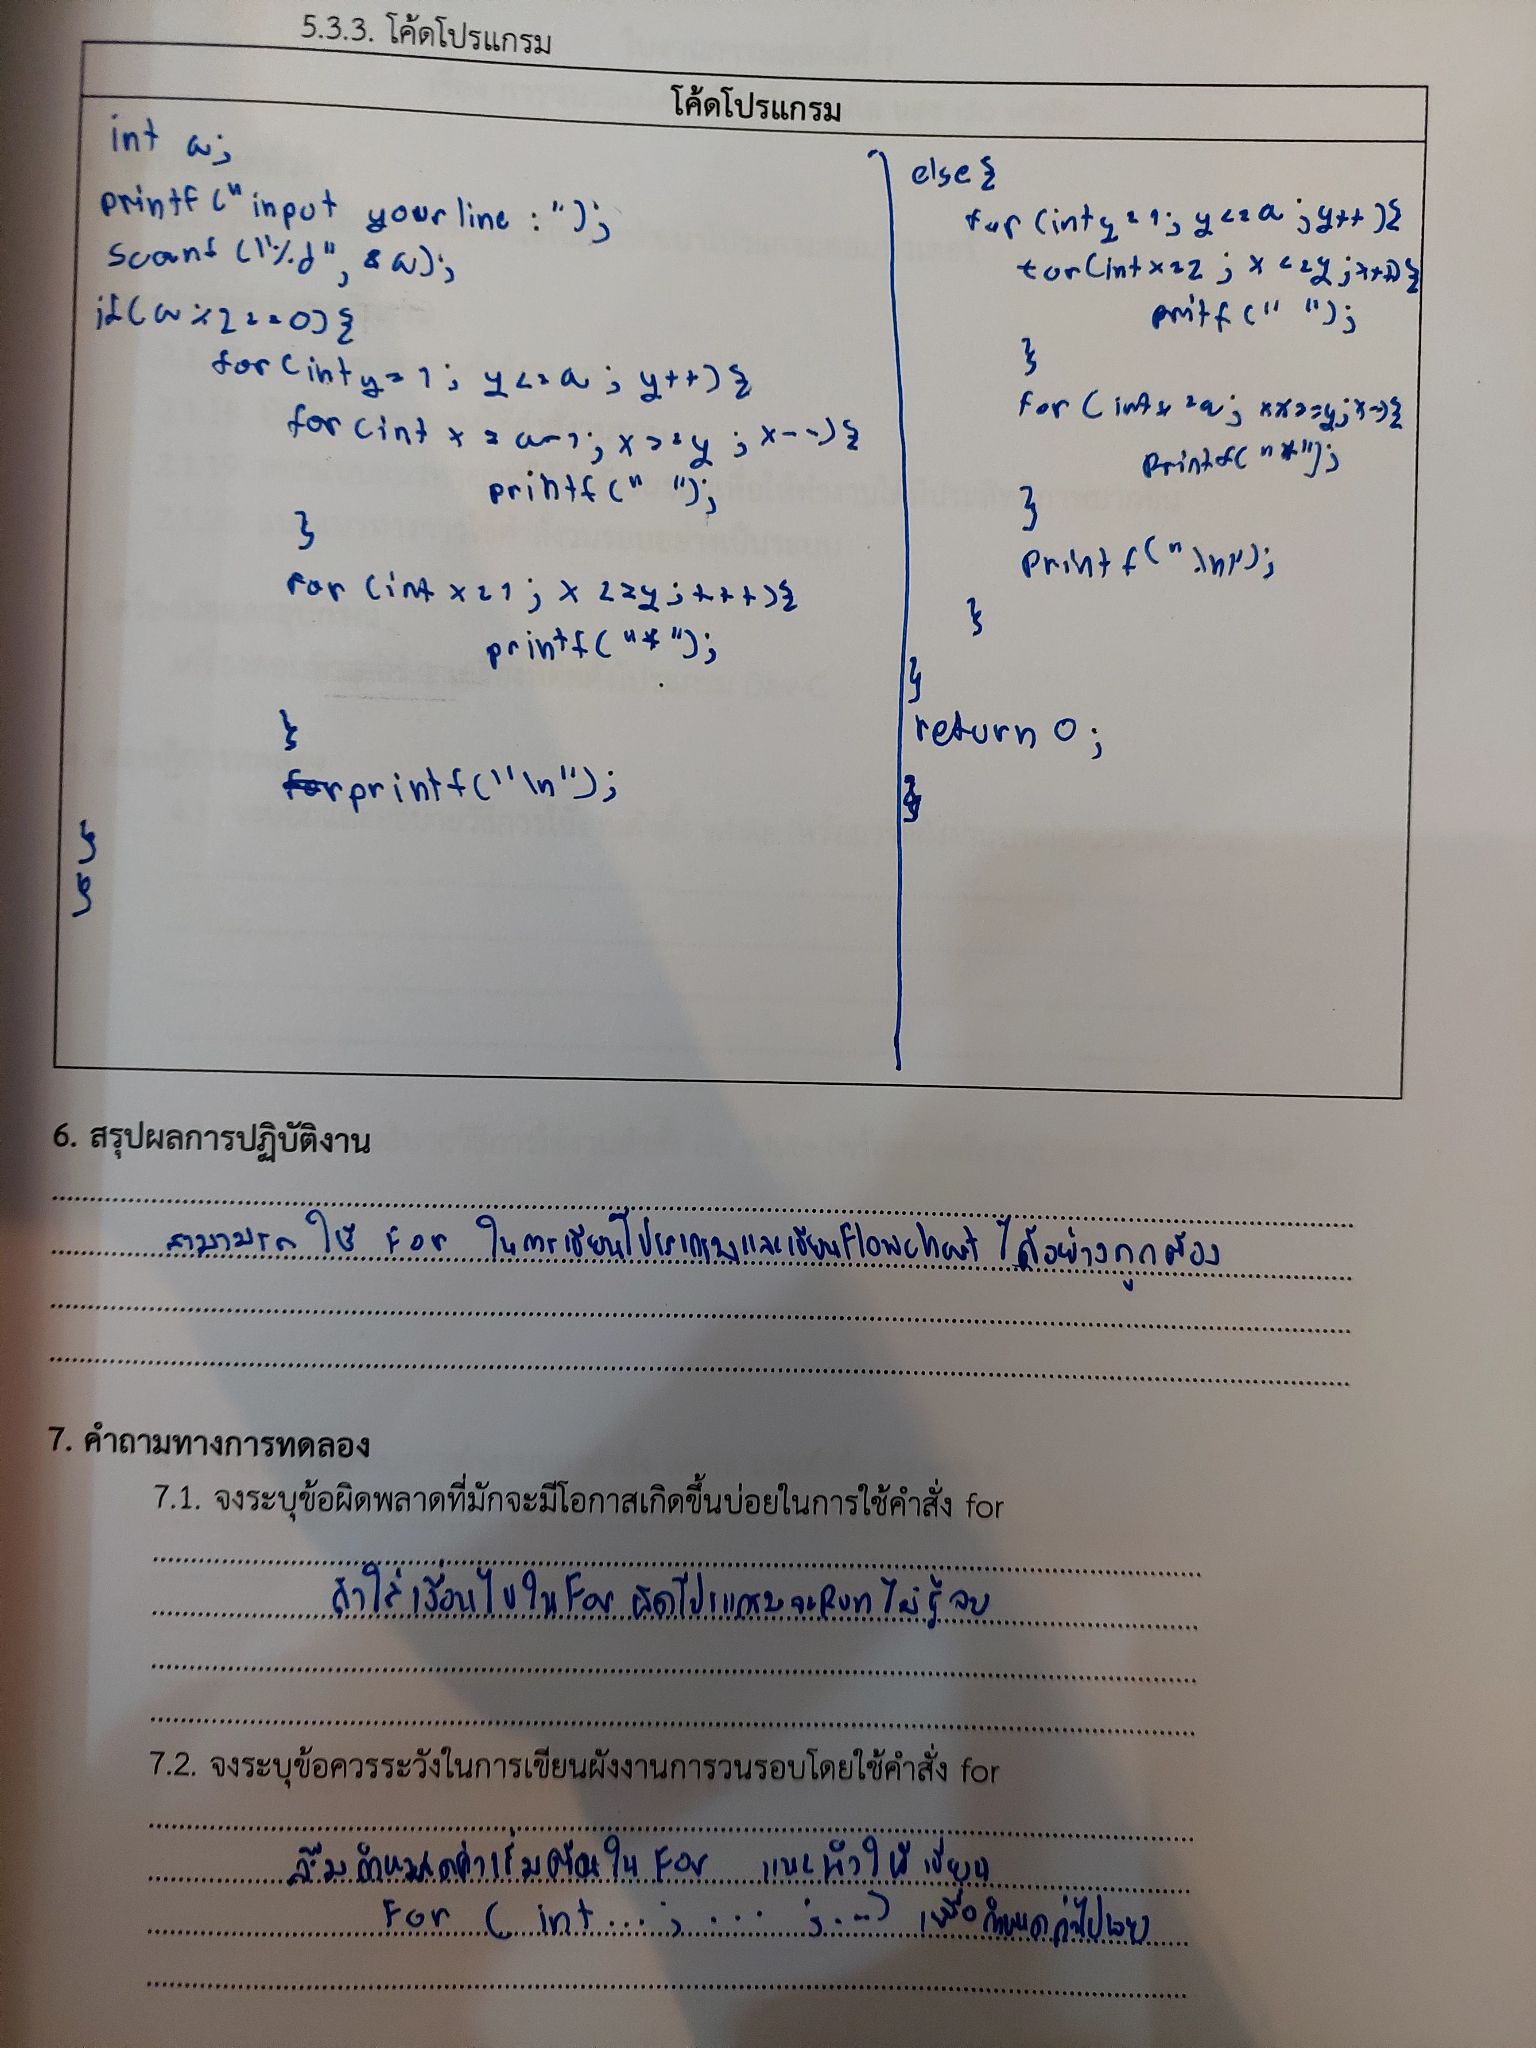 5.3.3. โค้ดโปรแกรม
โค้ดโปรแกรม
int a;
printf("input your line : ");
scanf("%d", &a);
if(a%2==0){
for(int y=1; y<=a; y++){
for(int x=a-1; x>=y; x--){
printf(" ");
}
for(int x=1; x<=y; x++){
printf("*");
}
printf("\n");
}
}
else{
for(int y=1; y<=a; y++){
for(int x=2; x<=y; x++){
pritf(" ");
}
for(int x=a; x>=y; x--){
printf("*");
}
printf("\n");
}
}
return 0;
}
6. สรุปผลการปฏิบัติงาน
สามารถ ใช้ For ในการเขียนโปรแกรมและเขียนflowchart ได้อย่างถูกต้อง
7. คำถามทางการทดลอง
7.1. จงระบุข้อผิดพลาดที่มักจะมีโอกาสเกิดขึ้นบ่อยในการใช้คำสั่ง for
ถ้าใส่เงื่อนไขในFor ผิดโปรแกรมจะRun ไม่รู้จบ
7.2. จงระบุข้อควรระวังในการเขียนผังงานการวนรอบโดยใช้คำสั่ง for
ลืมกำหนดค่าเริ่มต้นใน For แนะนำให้เขียน
For ( int...; ... ;...) เพื่อกำหนดค่าไปเลย